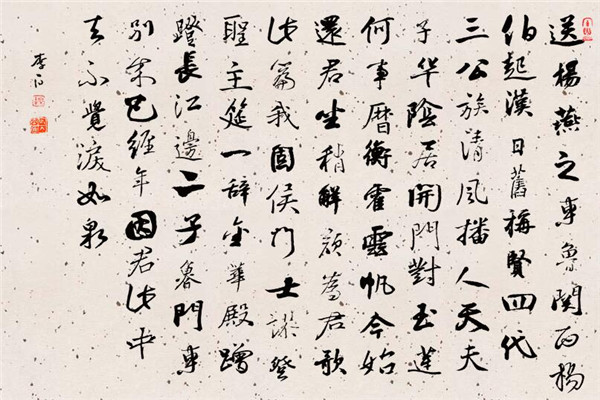 送楊燕之東魯關西楊
伯起漢日舊稱賢四代
三公族清風播人天夫
子华陰居開門對玉蓮
何事曆衡霍雲帆今始
還君坐稍解顏為君歌
此篇我固侯門士謬登
聖主筵一辞金華殿蹭
蹬長江邊二子魯門東
別來已經年因君此中
去不覺淚如泉
李白